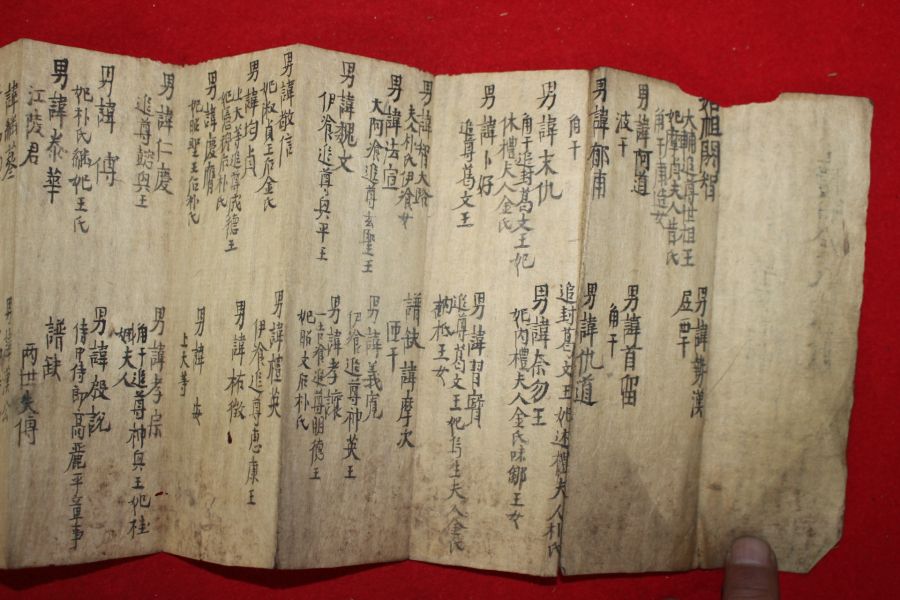 始祖閼智
大輔追尊世祖王
男諱勢漢
男諱阿道
波干
男諱首留
角干
男諱郁甫
角干
男諱仇道
追封葛文王妃述禮夫人朴氏
男諱末仇
角干追封葛文王妃
休禮夫人金氏
男諱奈勿王
妃內禮夫人金氏味鄒王女
男諱卜好
追尊葛文王
男諱習寶
追尊葛文王妃烏生夫人金氏
訥祗王女
男諱智大路
夫人朴氏伊飡女
譜缺諱摩次
匝干
男諱法宣
大阿飡追尊玄聖王
男諱義寬
伊飡追尊神英王
男諱魏文
伊飡追尊興平王
男諱孝讓
一吉飡追尊明德王
妃昭文后朴氏
男諱敬信
妃淑貞王后金氏
男諱禮英
伊飡追尊惠康王
男諱均貞
上大等追尊成德王
男諱祐徵
男諱慶膺
妃昭聖王后朴氏
男諱安
上大等
男諱仁慶
追尊懿興王
男諱孝宗
角干追尊神興王妃桂
娥夫人
男諱傅
妃朴氏繼妃王氏
男諱殷說
侍中侍郎高麗平章事
男諱泰華
江陵君
譜缺
兩世失傳